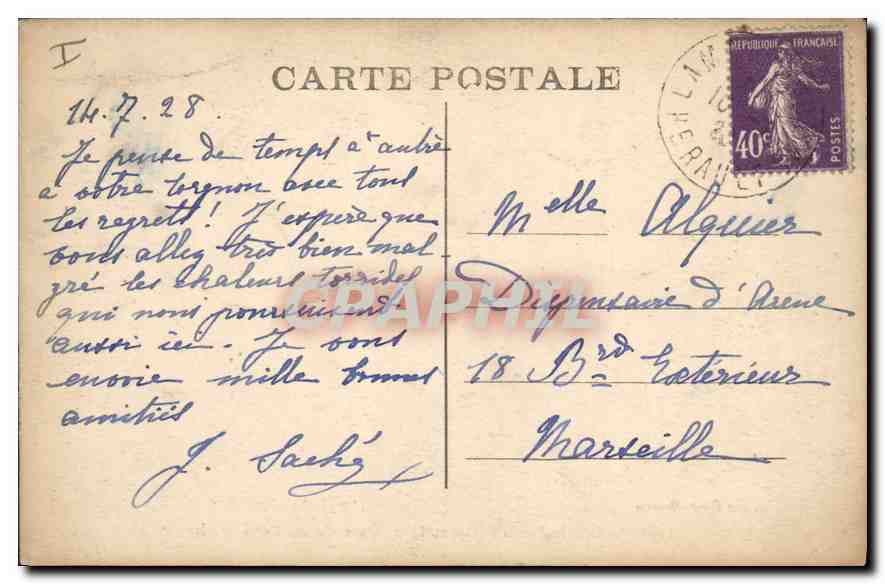 I
CARTE POSTALE
14.7.28.
Je pense de temps à autre
à votre torgnon avec tous
les regrets! J'espère que
vous allez très bien mal-
gré les chaleurs torrides
qui nous poursuivent
aussi ici. Je vous
envoie mille bonnes
amitiés
J.
REPUBLIQUE FRANÇAISE
40c
POSTES
HERAULT
Melle Alquier
Dispensaire d'Arenc
18 Brd Extérieur
Marseille
CPAPHIL